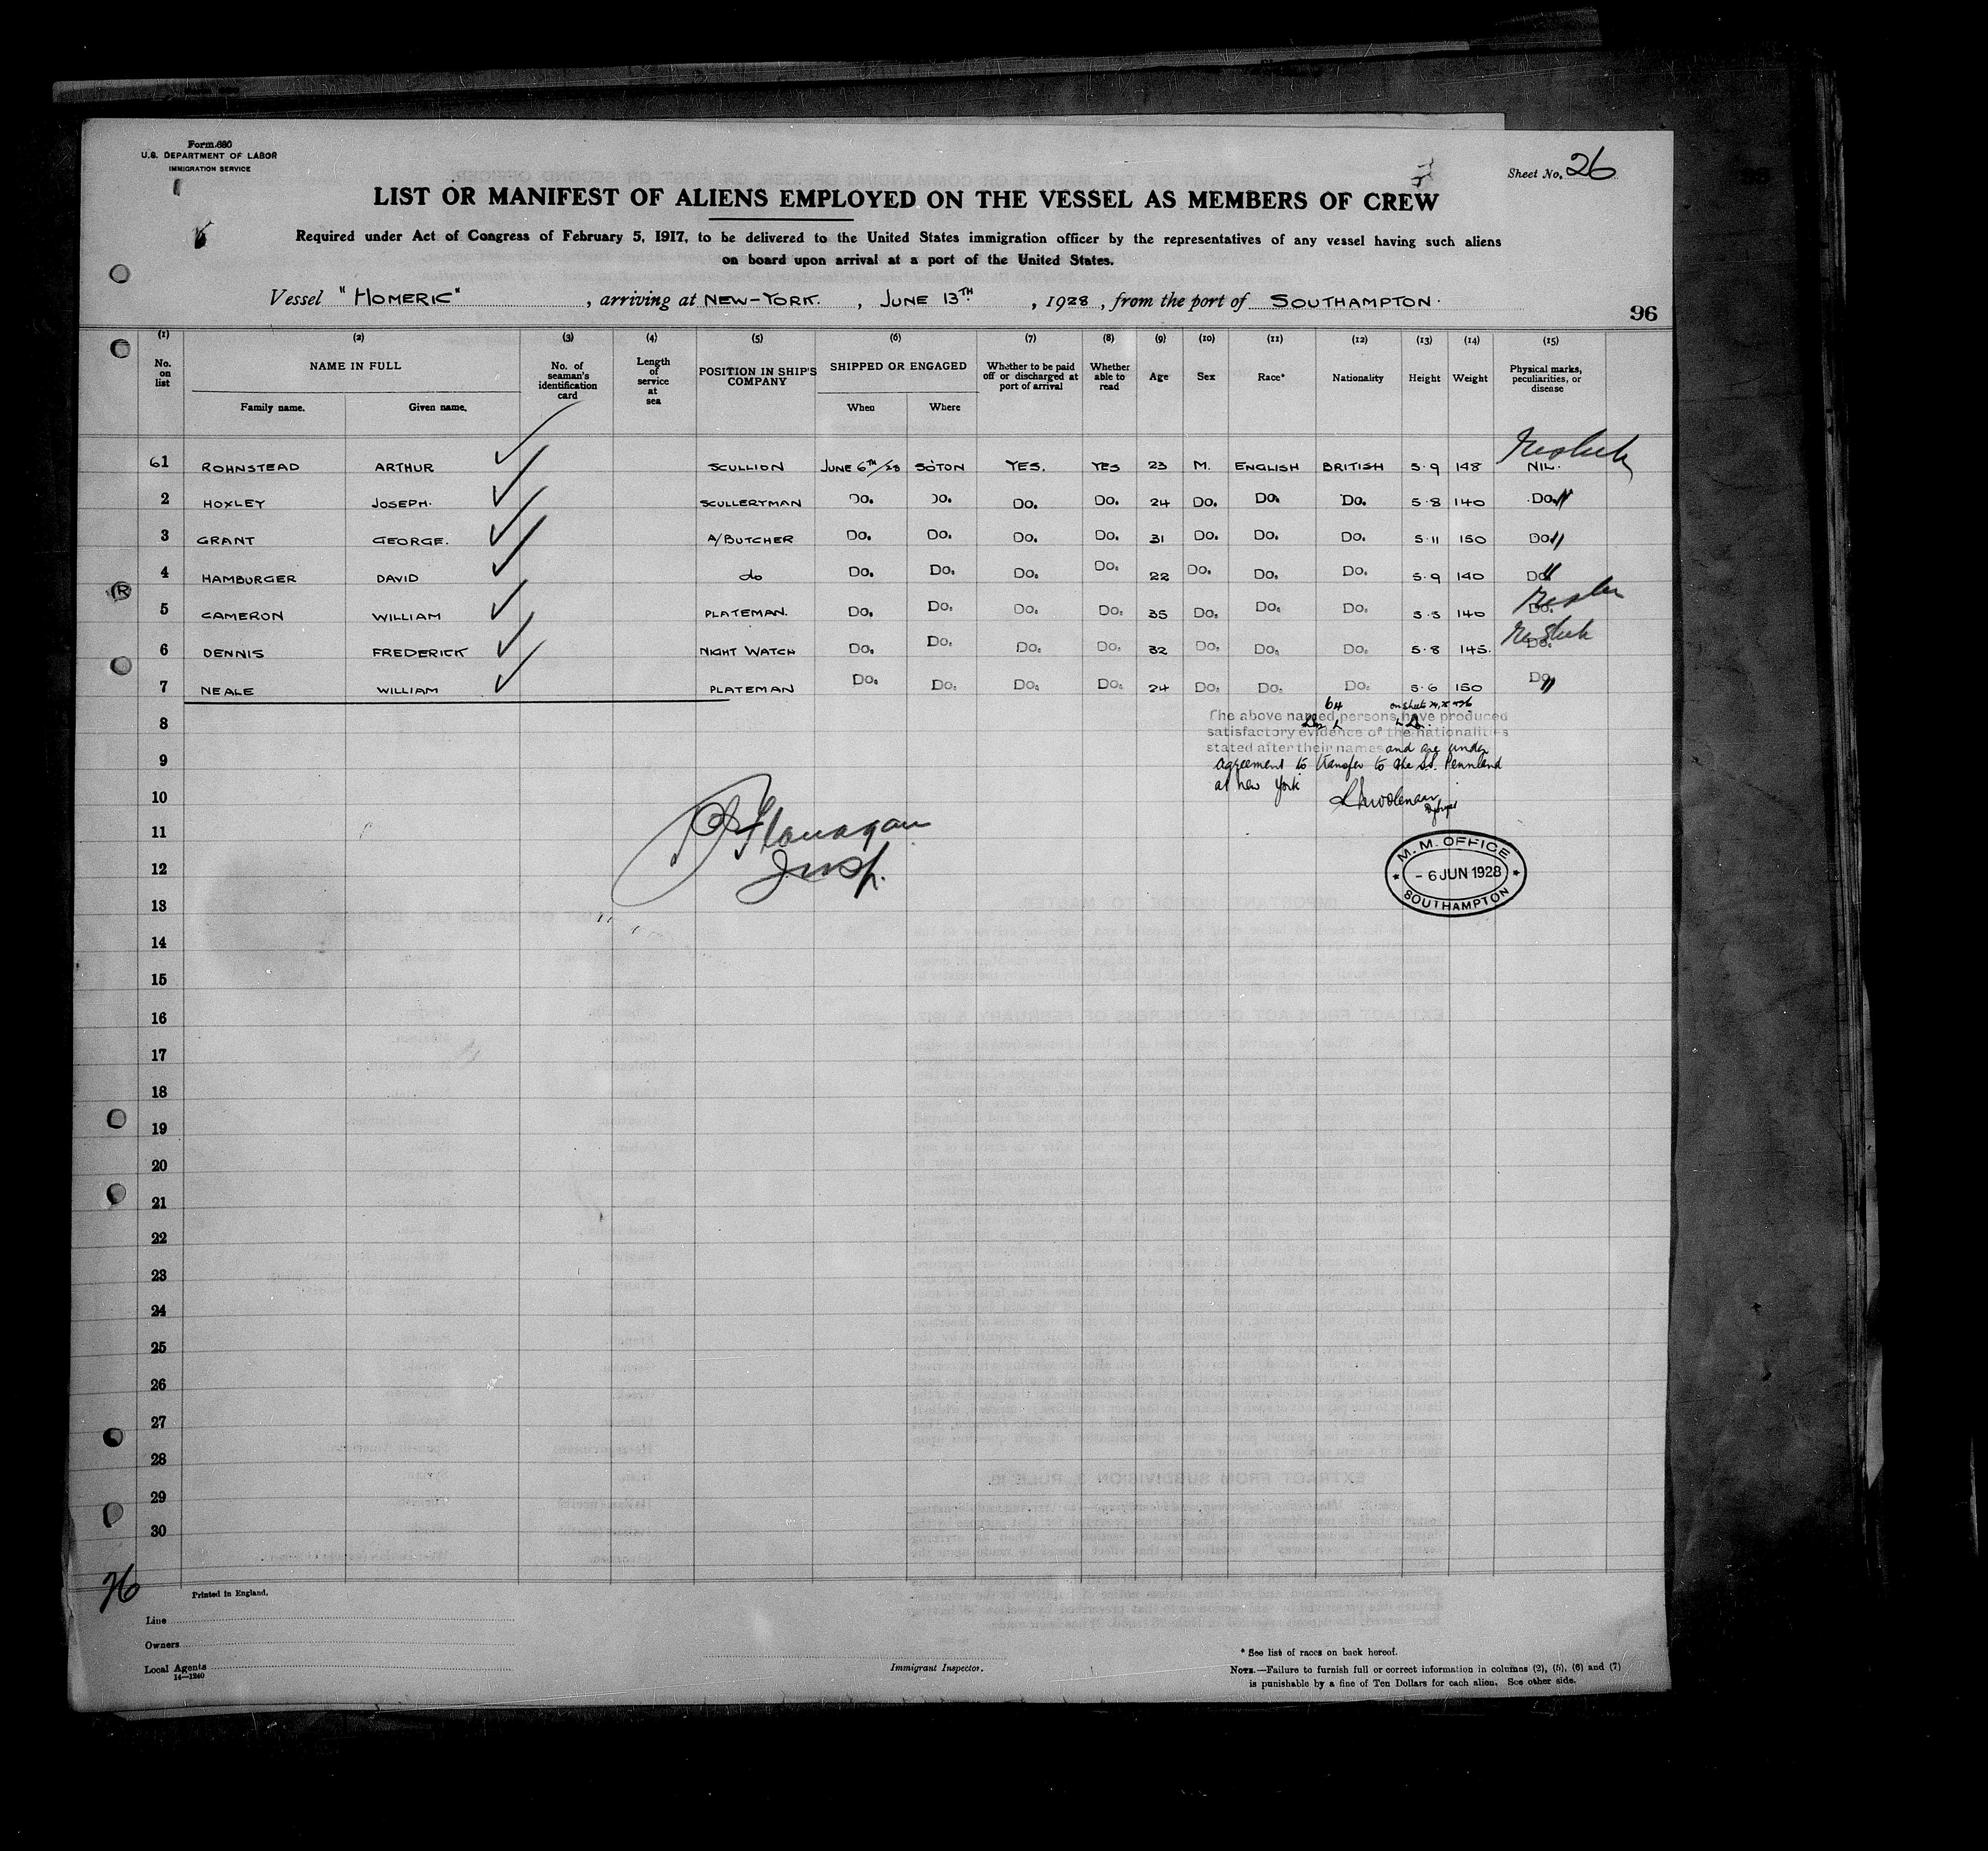 Form 680
U.S. DEPARTMENT OF LABOR
IMMIGRATION SERVICE
Sheet No. 26
LIST OR MANIFEST OF ALIENS EMPLOYED ON THE VESSEL AS MEMBERS OF CREW
Required under Act of Congress of February 5, 1917, to be delivered to the United States immigration officer by the representatives of any vessel having such aliens
on board upon arrival at a port of the United States.
Vessel "HOMERIC", arriving at NEW-YORK., JUNE 13TH, 1928, from the port of SOUTHAMPTON.
96
(1) (2) (3) (4) (5) (6) (7) (8) (9) (10) (11) (12) (13) (14) (15)
No. on list NAME IN FULL No. of seaman's identification card Length of service at sea POSITION IN SHIP'S COMPANY SHIPPED OR ENGAGED Whether to be paid off or discharged at port of arrival Whether able to read Age Sex Race* Nationality Height Weight Physical marks, peculiarities, or disease
Family name. Given name. When Where
61 ROHNSTEAD ARTHUR SCULLION JUNE 6TH/28 SOTON YES. YES 23 M. ENGLISH BRITISH 5.9 148 NIL.
2 HOXLEY JOSEPH. SCULLERYMAN DO. DO. DO. DO. 24 DO. DO. DO. 5.8 140 DO. "
3 GRANT GEORGE. A/BUTCHER DO. DO. DO. DO. 31 DO. DO. DO. 5.11 150 DO "
4 HAMBURGER DAVID do DO. DO. DO. DO. 22 DO. DO. DO. 5.9 140 DO "
5 CAMERON WILLIAM PLATEMAN. DO. DO. DO. DO. 35 DO. DO. DO. 5.5 140 DO.
6 DENNIS FREDERICK NIGHT WATCH DO. DO. DO. DO. 32 DO. DO. DO. 5.8 145. DO.
7 NEALE WILLIAM PLATEMAN DO. DO. DO. DO. 24 DO. DO. DO. 5.6 150 DO "
64 on sheets
The above named persons have produced
8
satisfactory evidence of the nationalities
stated after their names and are under
9
agreement to transfer to the SS. Pennland
at new York
10
Flanagan
11
Insp.
M.M. OFFICE
- 6 JUN 1928
SOUTHAMPTON
12
13
14
15
16
17
18
19
20
21
22
23
24
25
26
27
28
29
30
R
Printed in England.
Line
Owners
Local Agents
14—1240
Immigrant Inspector.
* See list of races on back hereof.
NOTE.—Failure to furnish full or correct information in columns (2), (5), (6) and (7)
is punishable by a fine of Ten Dollars for each alien. See other side.